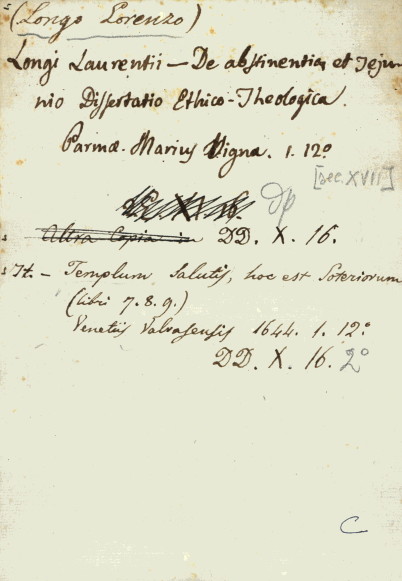 (Longo Lorenzo)
Longi Laurentii — De abstinentia et Jeju-
nio Dissertatio Ethico-Theologica.
Parmæ. Marius Vigna. 1. 12º
[sec. XVII]
dp
Altra Copia in DD. X. 16.
It. — Templum Salutis, hoc est Soteriorum
(libri 7. 8. 9.)
Venetiis Valvasensis 1644. 1. 12º
DD. X. 16. 2º
C